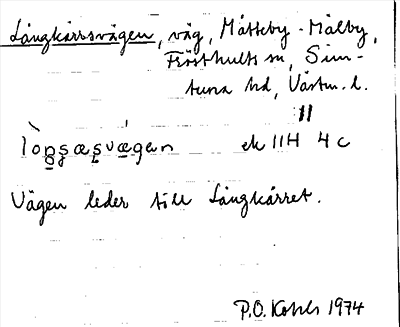 Långkärrsvägen, väg, Måtteby - Målby,
Frösthults sn, Sim-
tuna hd, Västm. l.
11
ek 11H 4c
Vägen leder till Långkärret.
P.O. Kohls 1974